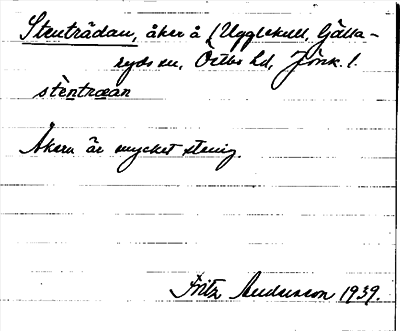 Stenträdan, åker å (Ugglekull, Gälla-
ryds sn, Östbo hd, Jönk. l.
stèntræan
Åkern är mycket stenig.
Fritz Andersson 1939.